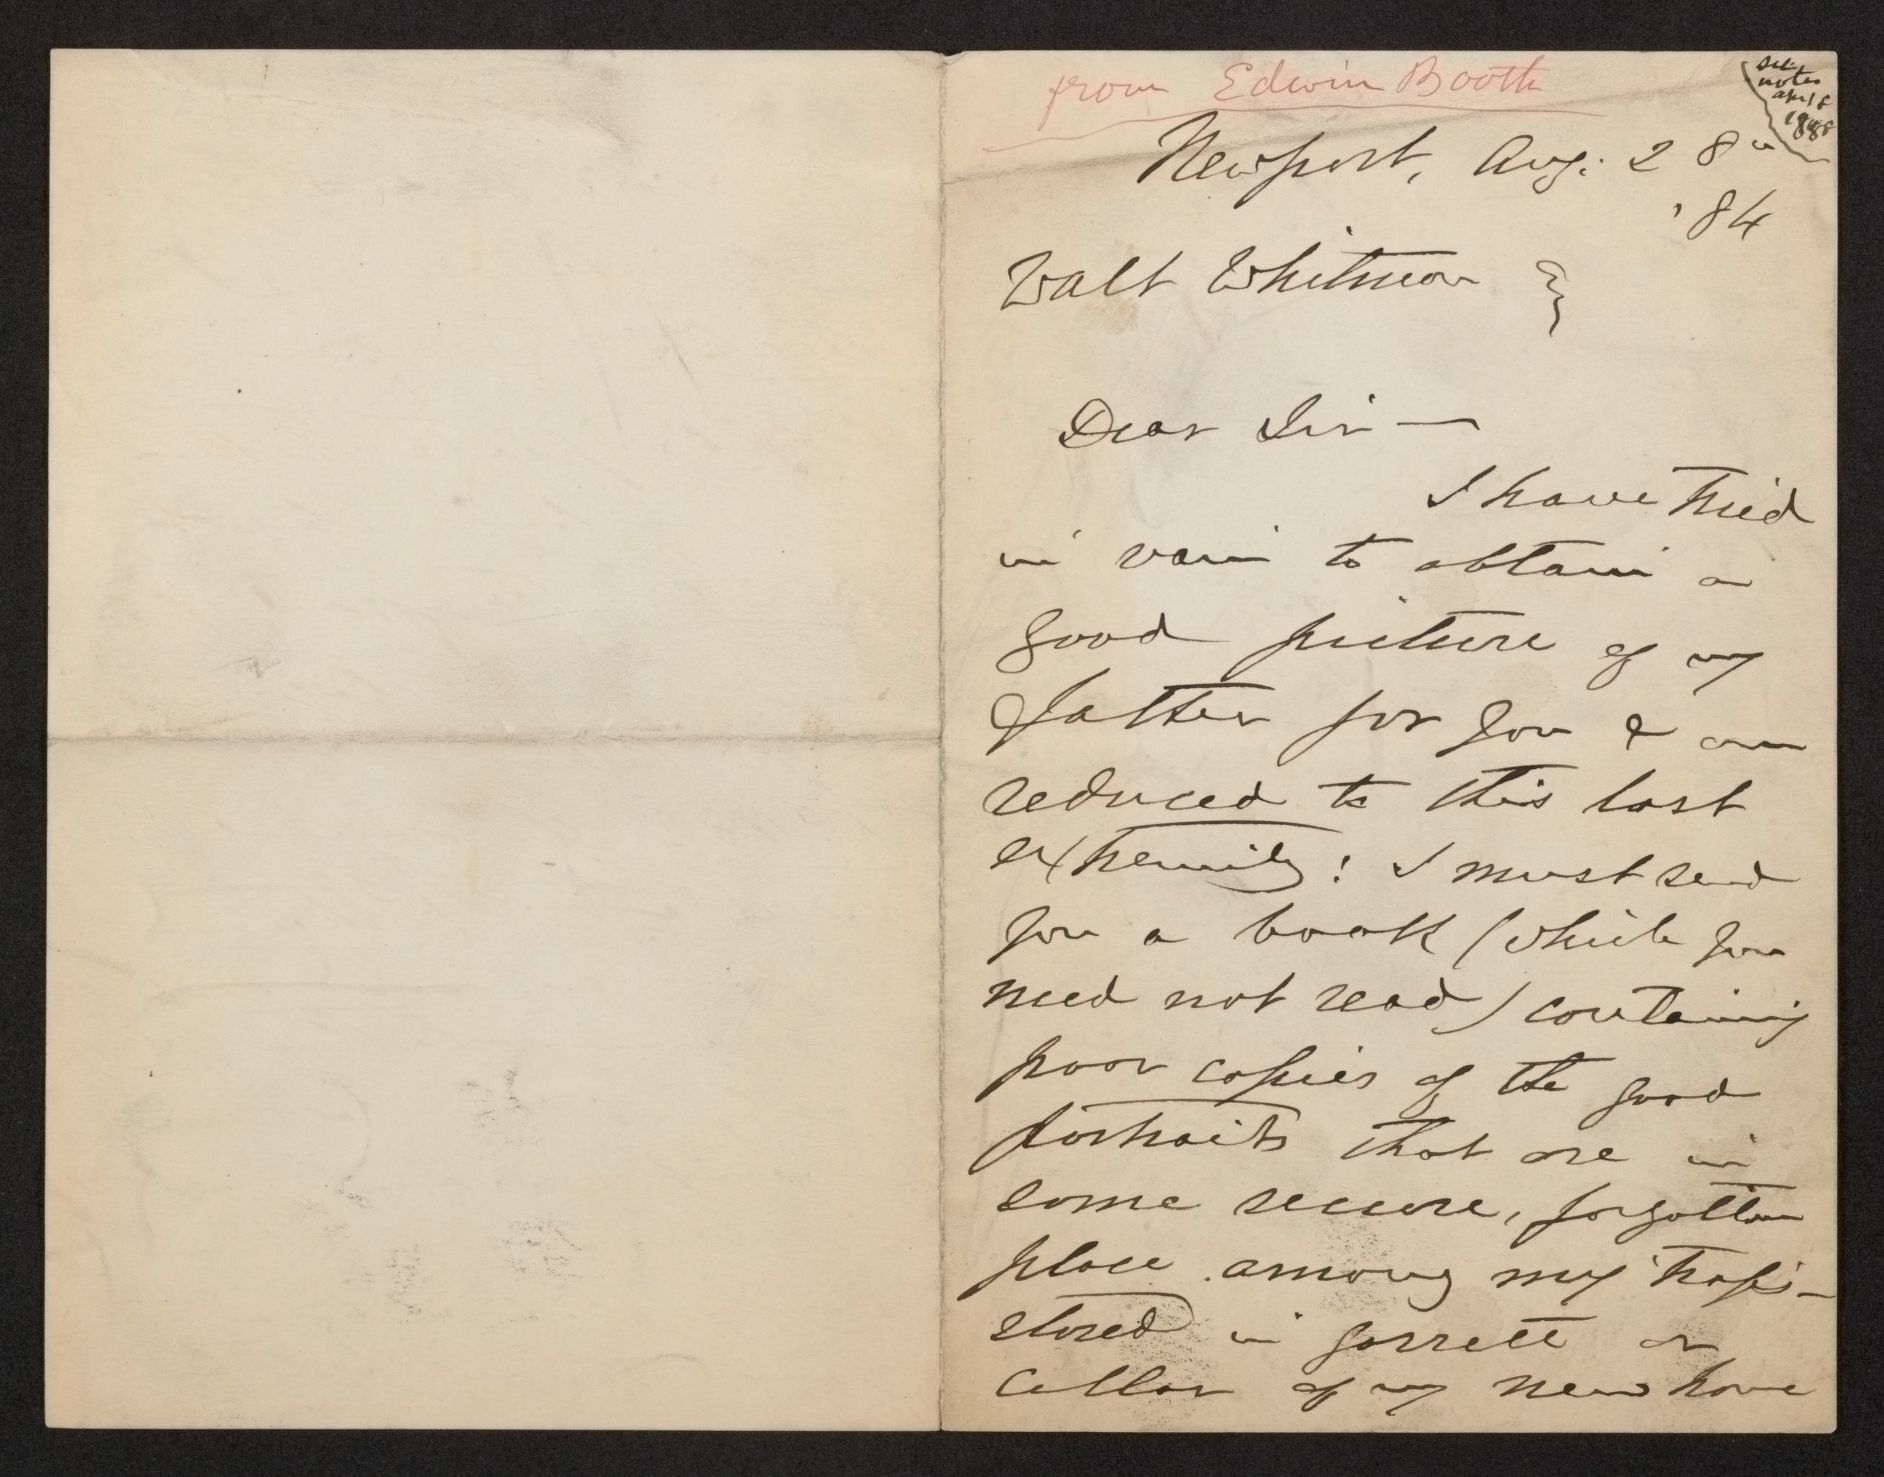 from Edwin Booth
see
notes
apr 18
1888
Newport, Aug: 28th
'84
Walt Whitman }
Dear Sir —
I have tried
in vain to obtain a
good picture of my
Father for you & am
reduced to this last
extremity: I must send
you a book (which you
need not read) containing
poor copies of the good
portraits that are in
some secure, forgotten
place among my 'traps' -
stored in garrett or
cellar of my new home